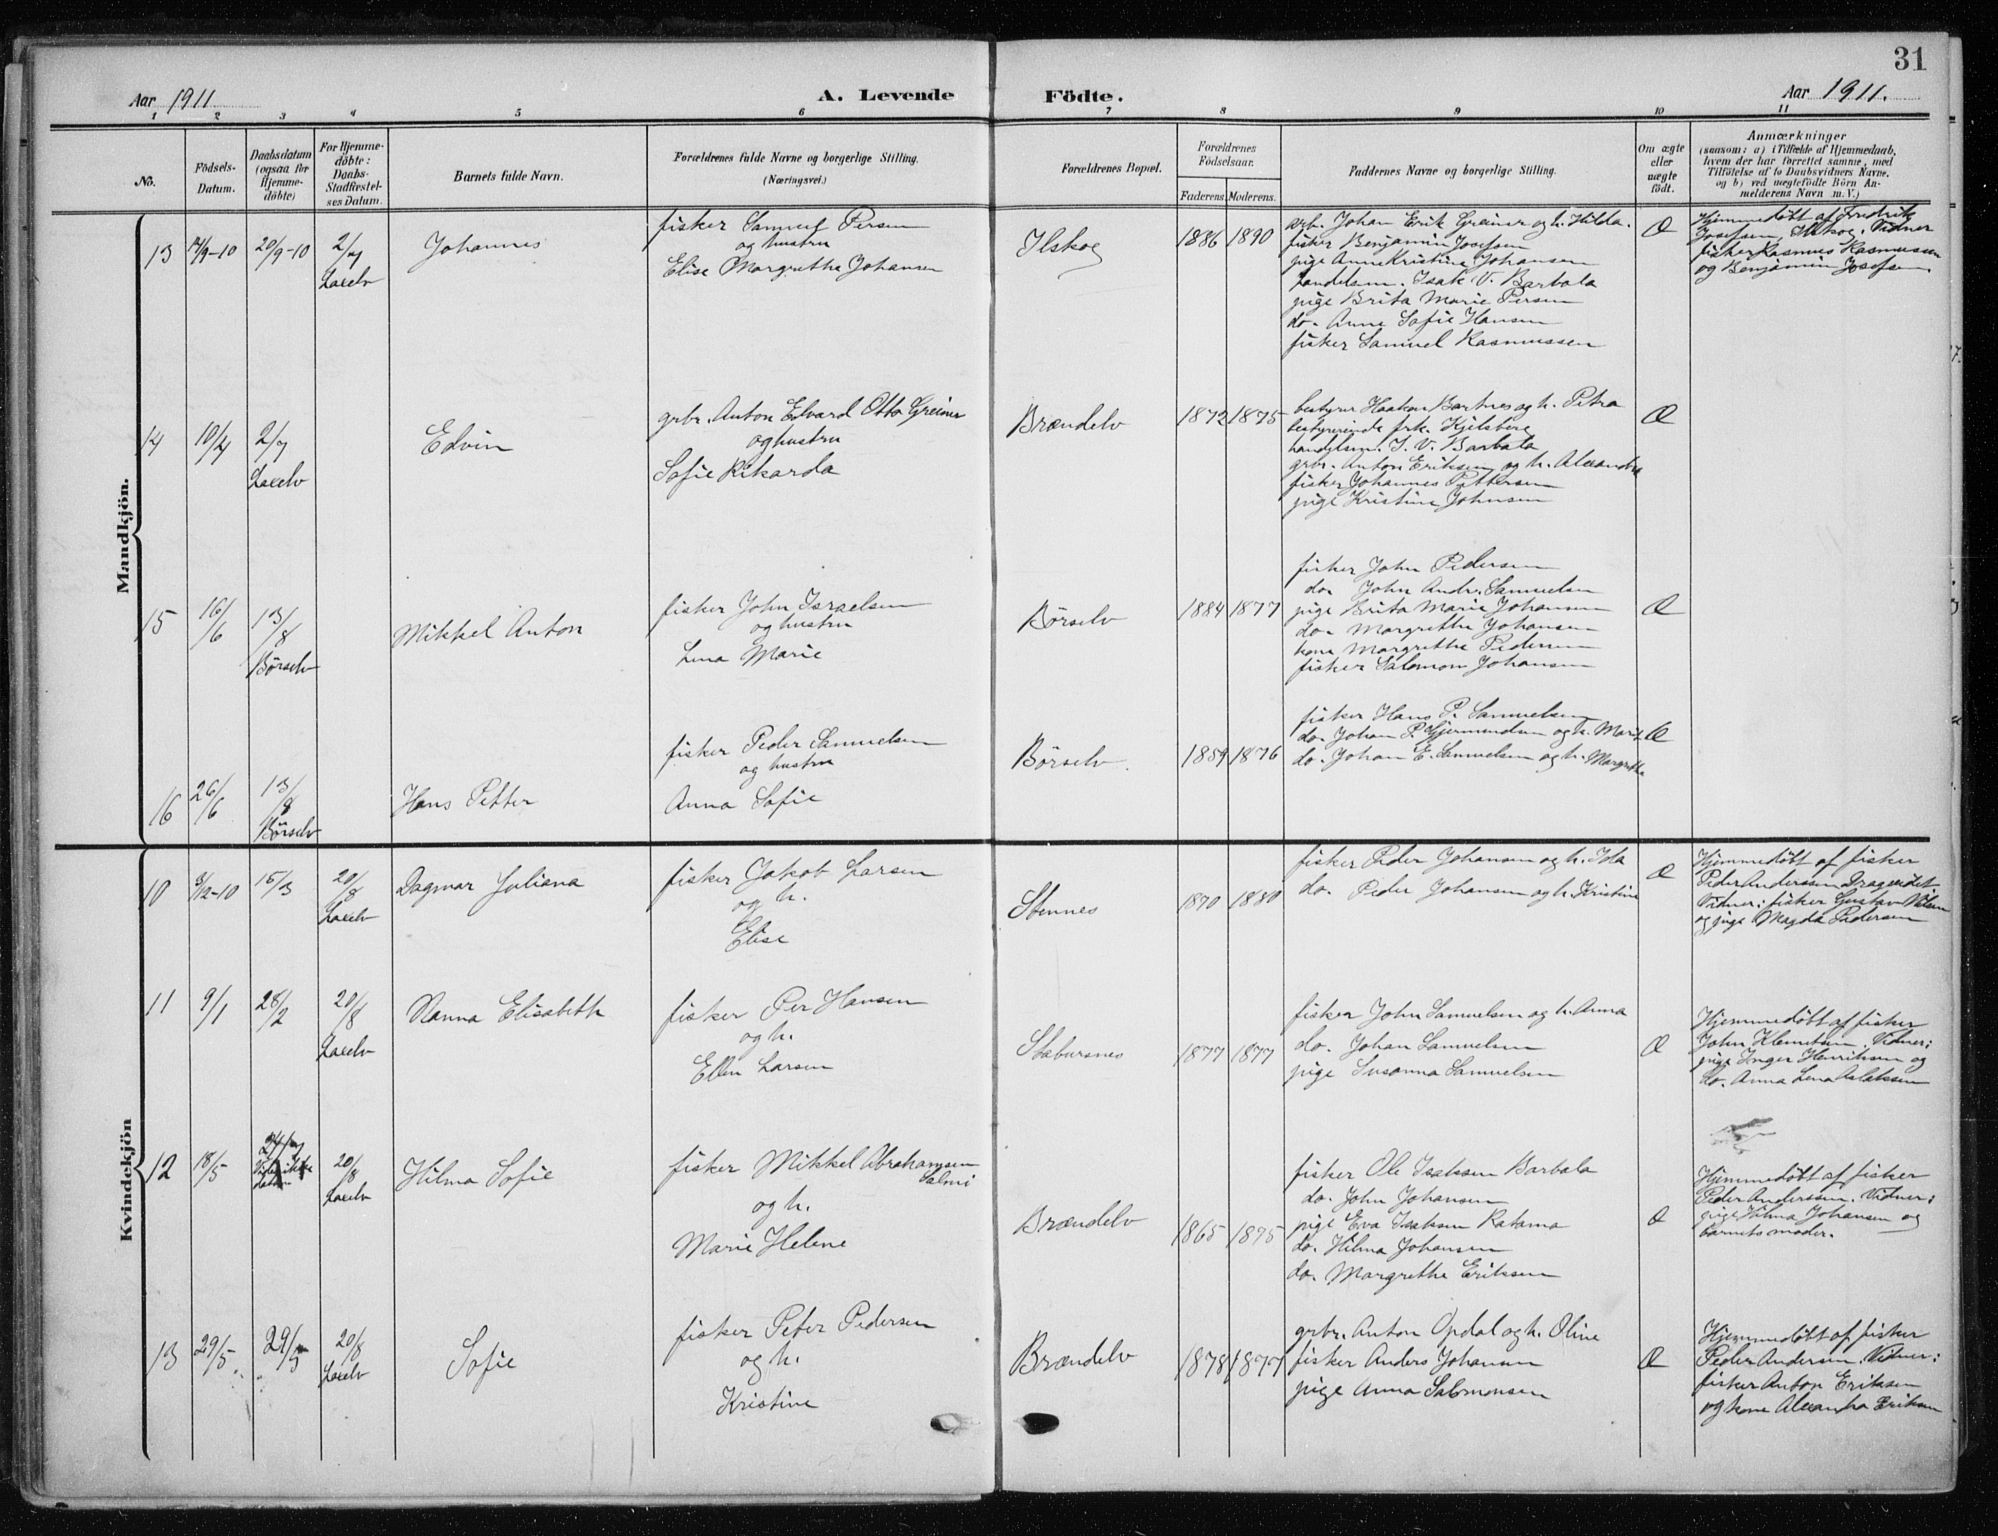 31
Aar 1911.
A. Levende Födte.
Aar 1911.
1 2 3 4 5 6 7 8 9 10 11
No.
Födsels-
Datum.
Daabsdatum
(ogsaa for
Hjemme-
döbte)
For Hjemme-
döbte:
Daabs-
Stadfæstel-
ses Datum.
Barnets fulde Navn.
Forældrenes fulde Navne og borgerlige Stilling.
(Næringsvei.)
Forældrenes Bopæl.
Forældrenes
Födselsaar.
Faderens. Moderens.
Faddernes Navne og borgerlige Stilling.
Om ægte
eller
uægte
födt.
Anmærkninger
(saasom: a) i Tilfælde af Hjemmedaab,
hvem der har forrettet samme, med
Tilföielse af to Daabsvidners Navne,
og b) ved uægtefödte Börn An-
melderens Navn m. V.)
Mandkjön.
13
7/9-10
20/9-10
2/7
Laxelv
Johannes
fisker Samuel Persen
og hustru
Elise Margrethe Johansen
Ilskog
1886
1890
Johan Erik Greiner og h. Hilda.
fisker Benjamin Josefsen
pige Anne Kristine Johansen
handelsm. Isak V. Barbala
pige Brita Marie Persen
do. Anne Sofie Hansen
fisker Samuel Rasmussen
Æ
Hjemmedöbt af Fredrik
Josefsen, Ilskog. Vidner
fisker Rasmus Rasmussen
og Benjamin Josefsen
14
10/4
2/7
Laxelv
Edvin
grbr. Anton Edvard Otto Greiner
og hustru
Sofie Rikarda
Brændelv
1872
1875
bestyrer Haakon Bartnes og h. Petra
bestyrerinde frk. Kjelsberg
handelsm. I. V. Barbala
grbr. Anton Eriksen og h. Alexandra
fisker Johannes Pettersen
pige Kristine Johnsen
Æ
15
16/6
13/8
Børselv
Mikkel Anton
fisker John Israelsen
og hustru
Lena Marie
Børselv
1884
1877
fisker John Pedersen
do. John Andr. Samuelsen
pige Brita Marie Johansen
do. Margrethe Johansen
kone Margrethe Pedersen
fisker Salomon Johansen
Æ
16
26/6
13/8
Børselv
Hans Petter
fisker Peder Samuelsen
og hustru
Anna Sofie
Børselv.
1859
1876
fisker Hans P. Samuelsen
do. Johan P. Hjermundsen og h. Marit
do. Johan E. Samuelsen og h. Margrethe
Æ
Kvindekjön
10
3/12-10
15/3
20/8
Laxelv
Dagmar Juliana
fisker Jakob Larsen
og h.
Elise
Stennes
1870
1880
fisker Peder Johansen og h. Ida
do. Peder Johansen og h. Kristine
Æ
Hjemmedöbt af fisker
Peder Anderssen Dragveidet
Vidner: fisker Gustav Nilsen
og pige Magda Pedersen
11
9/1
28/2
20/8
Laxelv
Nanna Elisabeth
fisker Per Hansen
og h.
Ellen Larsen
Stabursnes
1877
1877
fisker John Samuelsen og h. Anna
do. Johan Samuelsen
pige Susanna Samuelsen
Æ
Hjemmedöbt af fisker
John Klemetsen. Vidner:
pige Inger Henriksen og
do. Anna Lena Aslaksen
12
18/5
24/7
20/8
Laxelv
Hilma Sofie
fisker Mikkel Abrahamsen
Salmi
og h.
Marie Helene
Brændelv
1865
1875
fisker Ole Isaksen Barbala
do. John Johansen
pige Eva Isaksen Ratama
do. Hilma Johansen
do. Margrethe Eriksen
Æ
Hjemmedöbt af fisker
Peder Anderssen. Vidner:
pige Hilma Johansen og
barnets moder.
13
29/5
29/5
20/8
Laxelv
Sofie
fisker Peter Pedersen
og h.
Kristine
Brændelv
1878
1877
grbr. Anton Opdal og h. Oline
fisker Anders Johansen
pige Anna Salomonsen
Æ
Hjemmedöbt af fisker
Peder Andersen. Vidner:
fisker Anton Eriksen
og kone Alexandra Eriksen